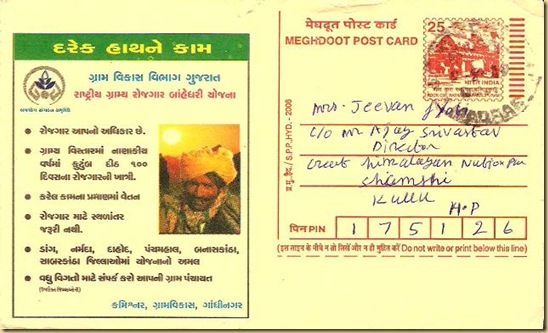 દરેક હાથને કામ
ગ્રામ વિકાસ વિભાગ ગુજરાત
રાષ્ટ્રીય ગ્રામ્ય રોજગાર બાંહેધરી યોજના
રોજગાર આપનો અધિકાર છે.
ગ્રામ્ય વિસ્તારમાં નાણાકીય
વર્ષમાં કુટુંબ દીઠ ૧૦૦
દિવસના રોજગારની ખાત્રી.
કરેલ કામના પ્રમાણમાં વેતન
રોજગાર માટે સ્થળાંતર
જરૂરી નથી.
ડાંગ, નર્મદા, દાહોદ, પંચમહાલ, બનાસકાંઠા,
સાબરકાંઠા જિલ્લાઓમાં યોજનાનો અમલ
વધુ વિગતો માટે સંપર્ક કરો આપની ગ્રામ પંચાયત
કમિશ્નર, ગ્રામવિકાસ, ગાંધીનગર
मेघदूत पोस्ट कार्ड
MEGHDOOT POST CARD
25
भारत INDIA
प्र.मु.हैद./S.P.P.,HYD.-2006
Mrs. Jeevan Jyoti
C/o Mr Ajay Srivastav
Director
Great Himalayan National Park
Shamshi
Kullu
H.P
पिन PIN 175126
(इस लाइन के नीचे न तो लिखें और न ही मुद्रित करें Do not write or print below this line)